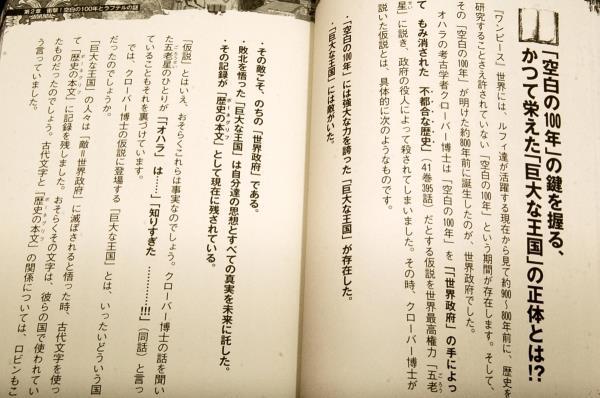 「空白の100年」の鍵を握る、
かつて栄えた「巨大な王国」の正体とは!?
『ワンピース』世界には、ルフィ達が活躍する現在から見て約900~800年前に、歴史を
研究することさえ許されない「空白の100年」という期間が存在します。そして、
その「空白の100年」が明けた約800年前に誕生したのが、世界政府でした。
オハラの考古学者クローバー博士は「空白の100年」を「『世界政府』の手によっ
て もみ消された 不都合な歴史」(41巻395話)だとする仮説を世界最高権力「五老
星」に説き、政府の役人によって殺されてしまいました。その時、クローバー博士が
説いた仮説とは、具体的に次のようなものです。
・「空白の100年」には強大な力を誇った「巨大な王国」が存在した。
・「巨大な王国」には敵がいた。
第2章 衝撃!空白の100年とラフテルの謎
・その敵こそ、のちの「世界政府」である。
・敗北を悟った「巨大な王国」は自分達の思想とすべての真実を未来に託した。
・その記録が「歴史の本文」として現在に残されている。
「仮説」とはいえ、おそらくこれらは事実なのでしょう。クローバー博士の話を聞い
た五老星のひとりが「『オハラ』は……」「知りすぎた …………!!!」(同話)と言っ
ていることもそれを裏づけています。
では、クローバー博士の仮説に登場する「巨大な王国」とは、いったいどういう国
だったのでしょうか。
「巨大な王国」の人々は「敵=世界政府」に滅ぼされると悟った時、古代文字を使っ
て「歴史の本文」に記録を残しました。おそらくその文字は、彼らの国で使われてい
たものだったのでしょう。古代文字と「歴史の本文」の関係については、ロビンもこ
う言っていました。